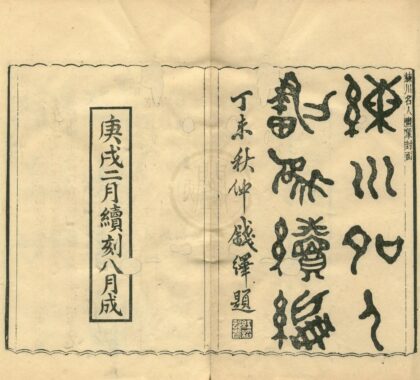 練川名人畫象封面
練川名人
畫象續編
丁未秋仲錢繹題
庚戌二月續刻八月成